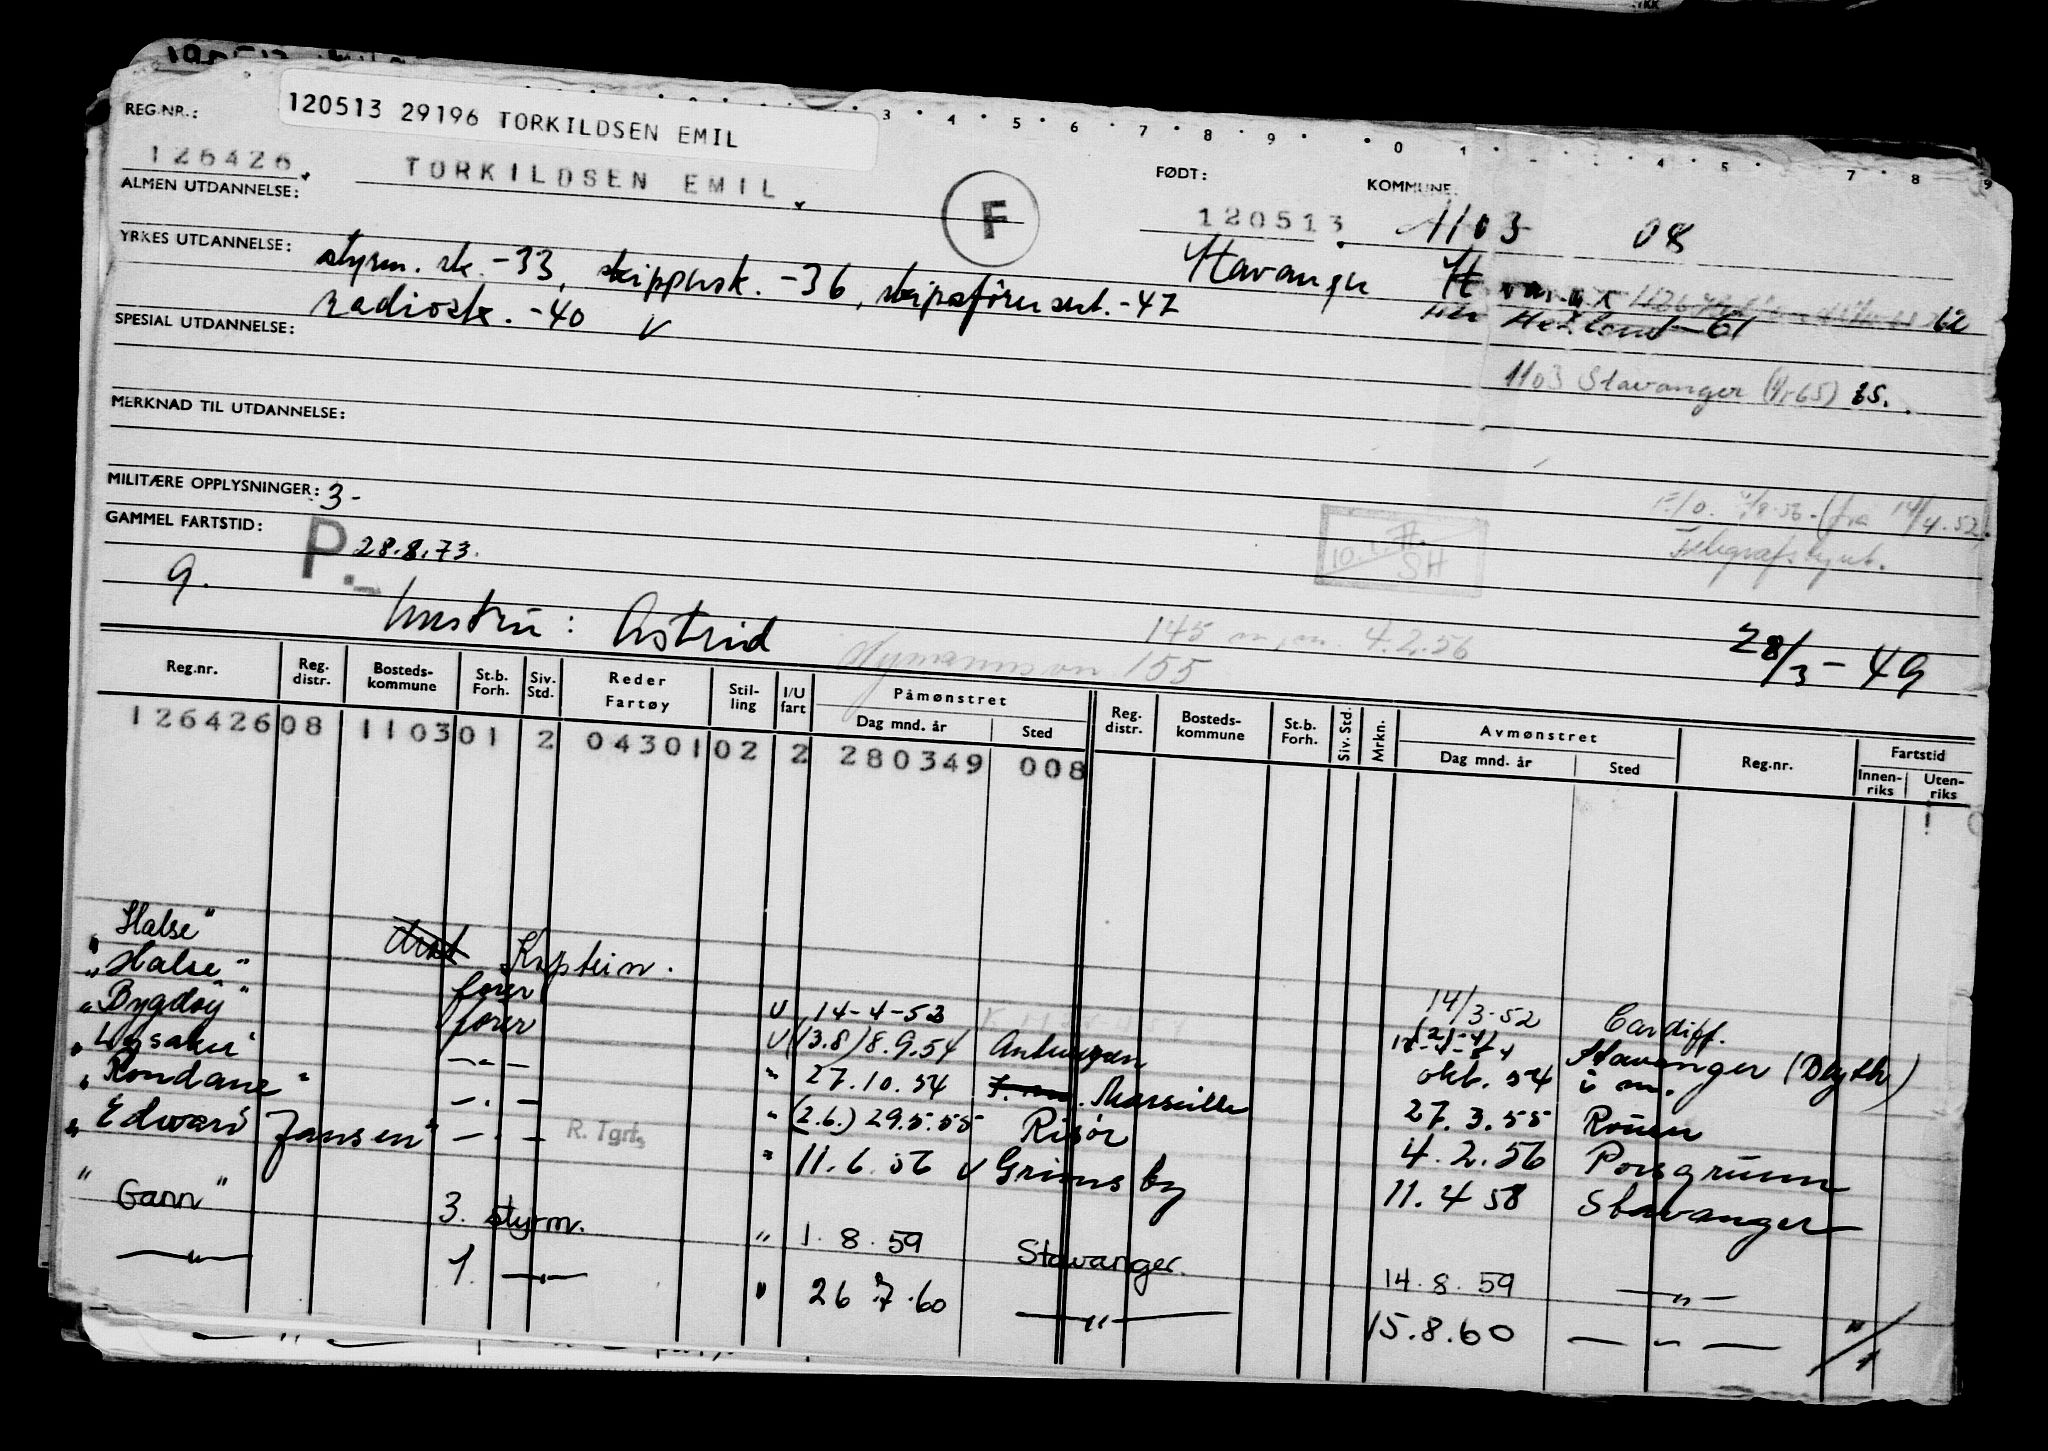 120513 29196 TORKILDSEN EMIL
REG.NR.:
126426. TORKILDSEN EMIL.
F
FØDT: 120513.
KOMMUNE: 1103 08
ALMEN UTDANNELSE:
Stavanger
YRKES UTDANNELSE: styrm. sk. -33, skippersk. -36, skipsførersert. -47
radiosk. -40 v
Hetland 61 62
SPESIAL UTDANNELSE:
1103 Stavanger (1/1 65) 65.
MERKNAD TIL UTDANNELSE:
MILITÆRE OPPLYSNINGER: 3-
F/O. 4/8-56 - (fra 14/4.52)
Telegrafstyrt.
GAMMEL FARTSTID: P. 28.8.73.
SH
9.
Hustru: Astrid
145 m.m. 4.2.56
155
28/3 - 49
Reg.nr. Reg. distr. Bosteds-kommune St.b. Forh. Siv. Std. Reder Fartøy Stil-ling I/U fart Påmønstret Dag mnd. år Sted Reg. distr. Bosteds-kommune St.b. Forh. Siv. Std. Mrkn. Avmønstret Dag mnd. år Sted Reg.nr. Fartstid Innen-riks Uten-riks
126426 08 1103 01 2 04301 02 2 280349 008
"Halse" Kaptein. 14/3-52 Cardiff.
"Halse" fører v 14-4-52 (21-4) Stavanger (Blyth)
"Bygdøy" fører v (13.8) 8.9.54 Antwerpen okt. 54 i m.
"Lysaker" — " — " 27.10.54 Marseille 27.3.55 Rouen
"Rondane" — " — " (2.6.) 29.5.55 Risør 4.2.56 Porsgrunn
"Edward Jansen" — " — R. Tgrt. " 11.6.56 v Grimsby 11.4 58 Stavanger
"Gann" 3. styrm. " 1.8.59 Stavanger. 14.8.59 — " —
— " — 1. — " — " 26.7.60 — " — 15.8.60 — " —